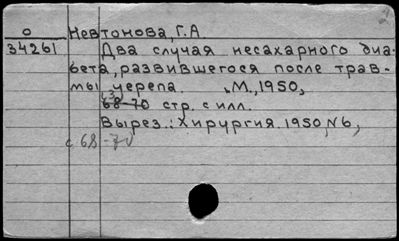 О Невтонова, Г.А
34261 Два случая несахарного диа-
бета, развившегося после трав-
мы черепа. М., 1950,
68-70 стр. с илл.
Вырез.: Хирургия. 1950, №6,
с 68-70